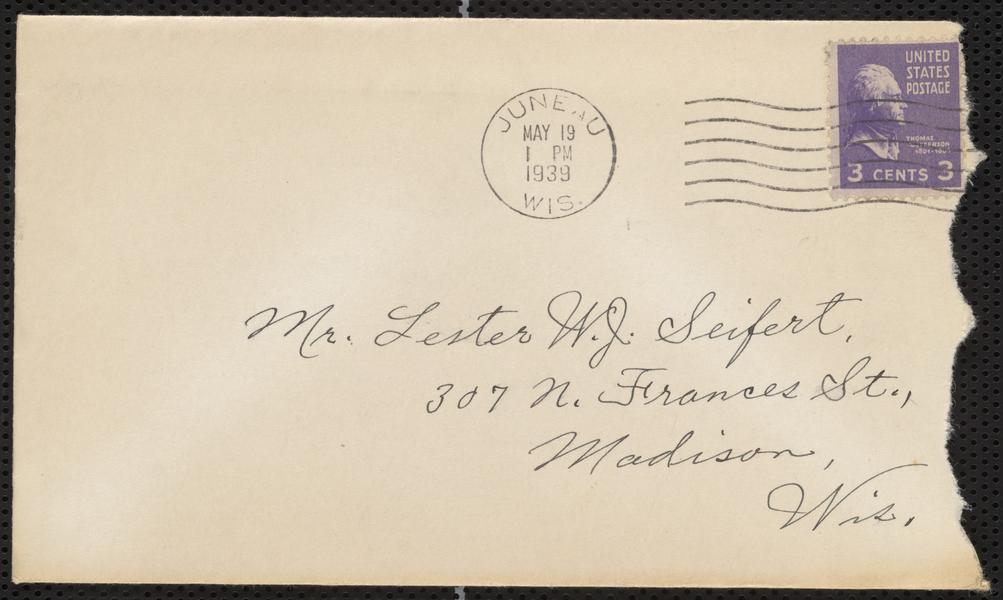 UNITED
STATES
POSTAGE
THOMAS
JEFFERSON
1801-1809
3 CENTS 3
JUNEAU
MAY 19
1 PM
1939
WIS.
Mr. Lester W.J. Seifert,
307 N. Frances St.,
Madison,
Wis.